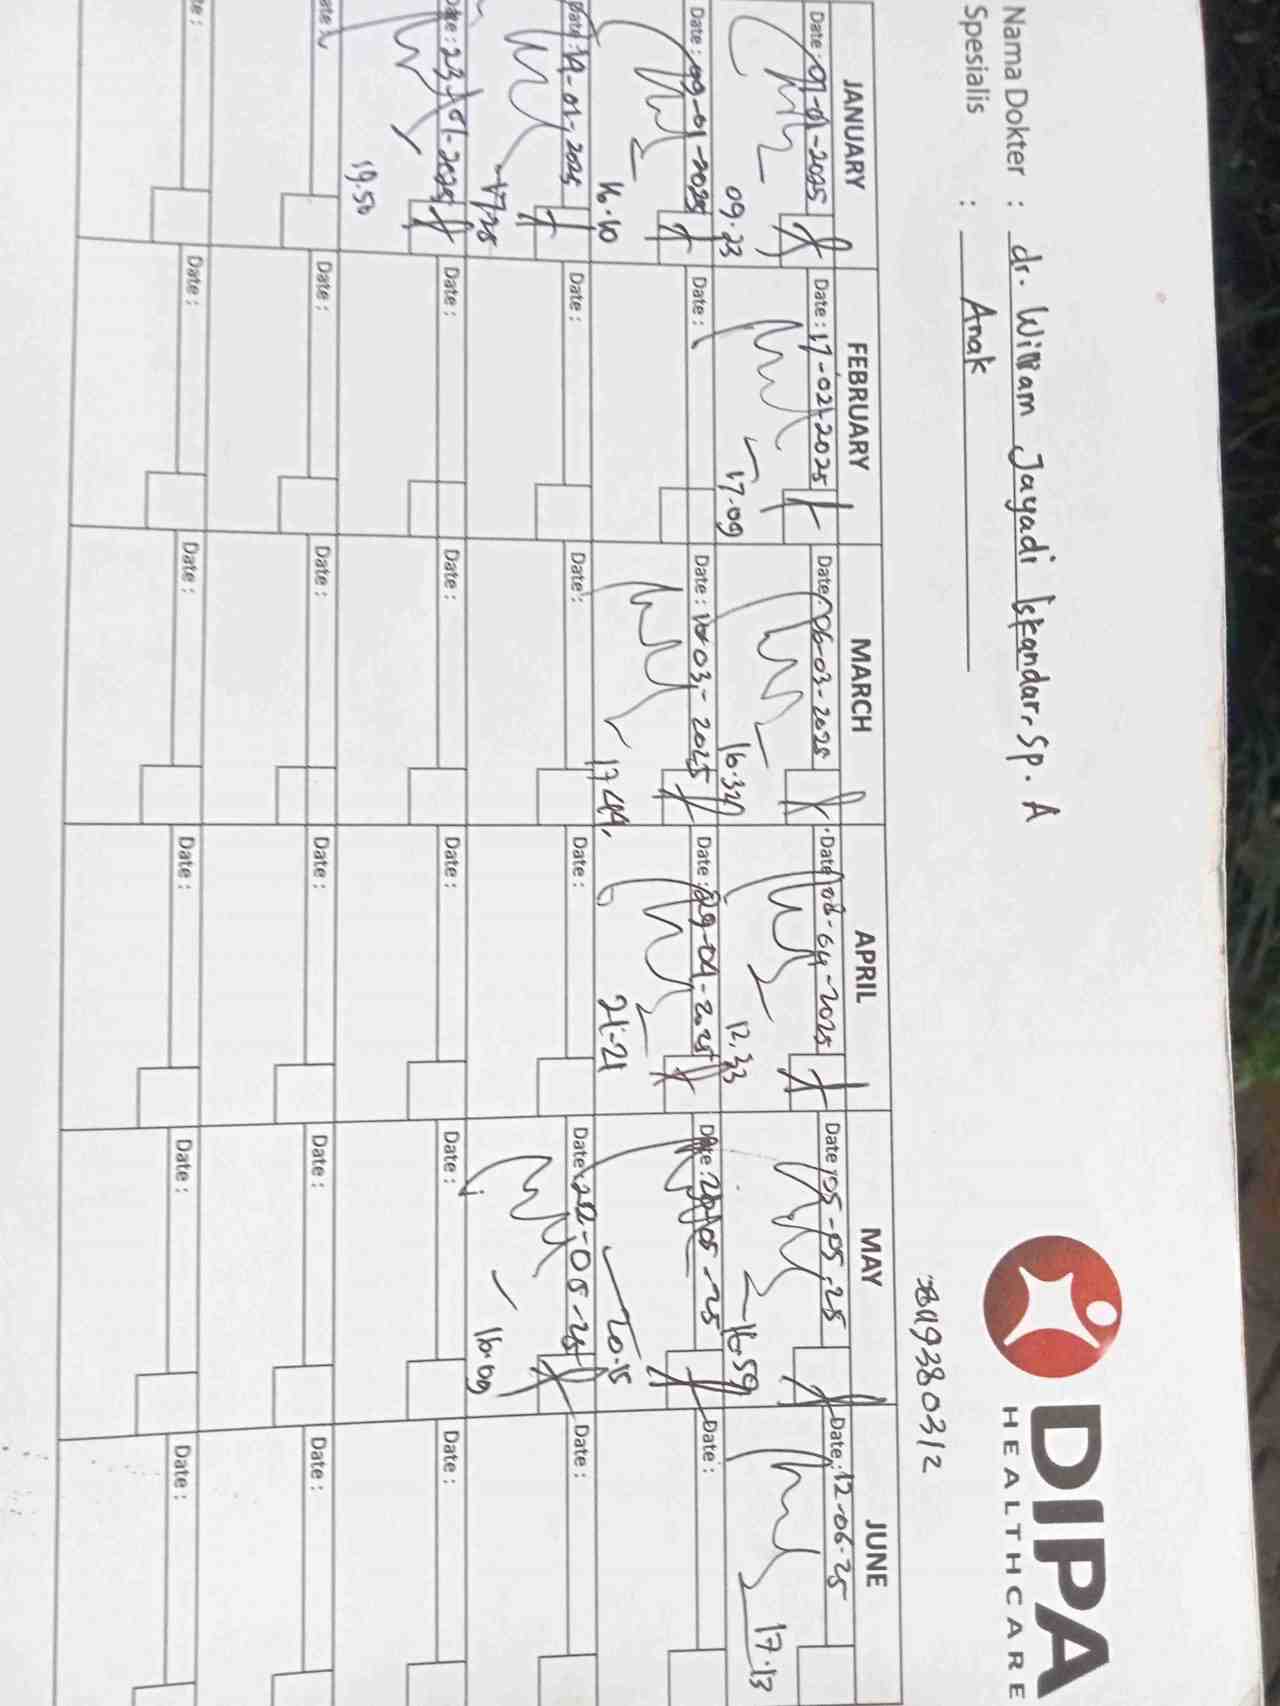 DIPA
HEALTHCARE
Nama Dokter : dr. William Jayadi Iskandar, Sp. A
Spesialis : Anak
JANUARY FEBRUARY MARCH APRIL MAY JUNE
Date : 07-01-2025 Date : 17-02-2025 Date : 06-03-2025 Date : 08-04-2025 Date : 05-05-25 Date : 12-06-25
09.23 17.09 12.33 16.59 17.13
Date : 09-01-2025 Date : Date : 10-03-2025 Date : 29-04-2025 Date : 20-05-25 Date :
16.10 17.49 21.21 20.15
Date : 14-01-2025 Date : Date : Date : Date : 22-05-25 Date :
17.28 16.09
Date : 23-01-2025 Date : Date : Date : Date : Date :
19.50
Date : Date : Date : Date : Date : Date :
Date : Date : Date : Date : Date :